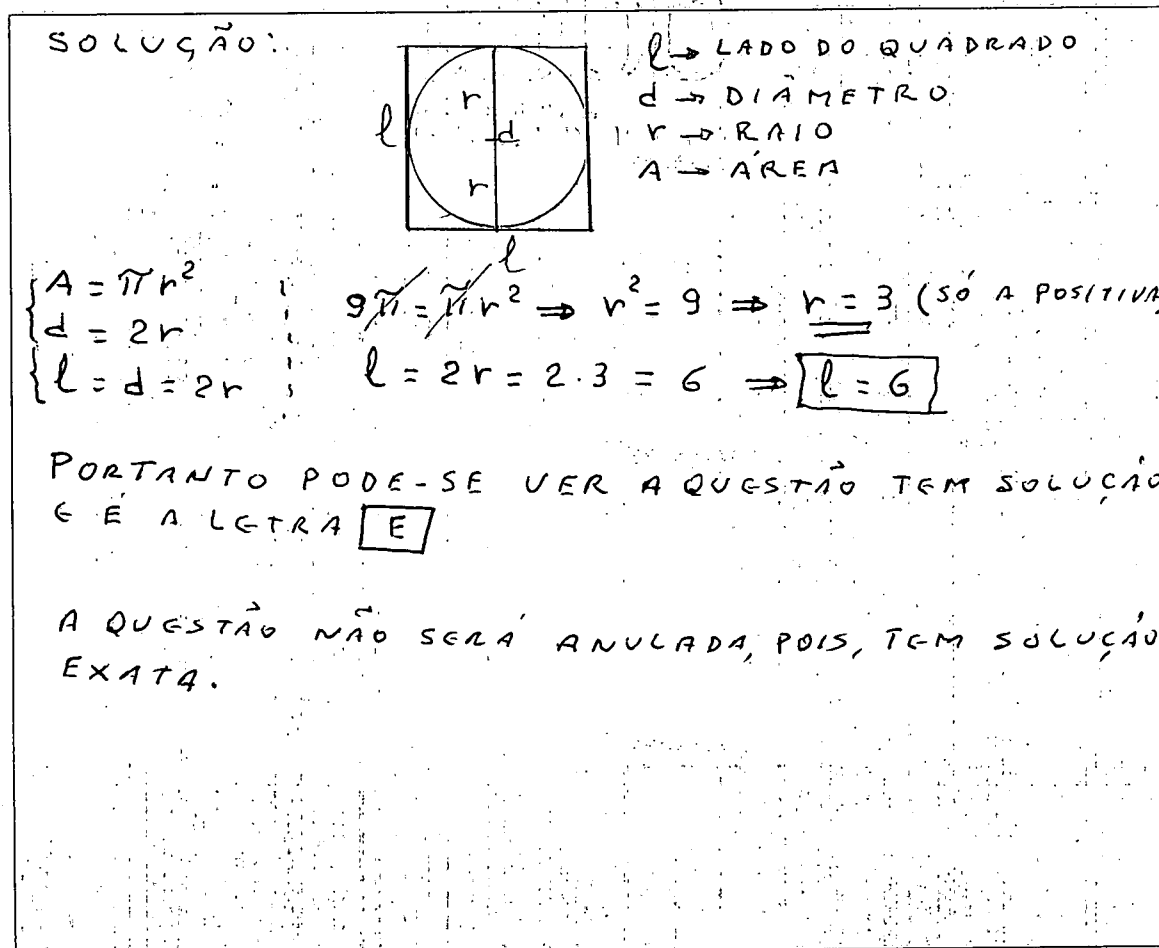 SOLUÇÃO:
l → LADO DO QUADRADO
d → DIÂMETRO
r → RAIO
A → ÁREA
r
l
d
r
l
A = πr²
d = 2r
l = d = 2r
9π = πr² ⇒ r² = 9 ⇒ r = 3 (SÓ A POSITIVA
l = 2r = 2.3 = 6 ⇒ l = 6
PORTANTO PODE-SE VER A QUESTÃO TEM SOLUÇÃO
E É A LETRA E
A QUESTÃO NÃO SERÁ ANULADA, POIS, TEM SOLUÇÃO
EXATA.